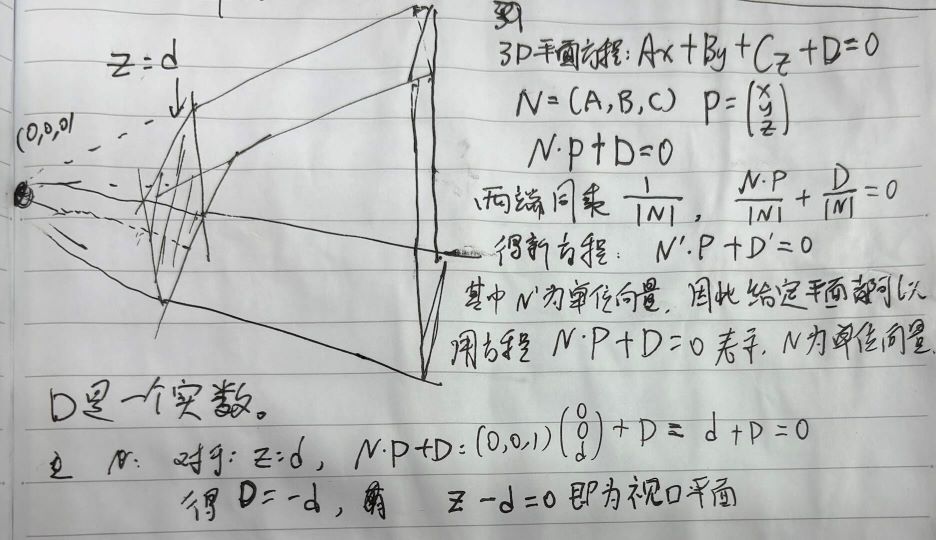 z=d
(0,0,0)
3D平面方程: Ax+By+Cz+D=0
N=(A,B,C) P=(x y z)
N·P+D=0
两端同乘 1/|N|, N·P/|N| + D/|N| = 0
得新方程: N'·P+D'=0
其中N'为单位向量, 因此给定平面都可以
用方程 N·P+D=0 表示, N为单位向量.
D是一个实数。
对于: z=d, N·P+D: (0,0,1)(0 0 d)+D = d+D=0
得 D=-d, z-d=0 即为视口平面